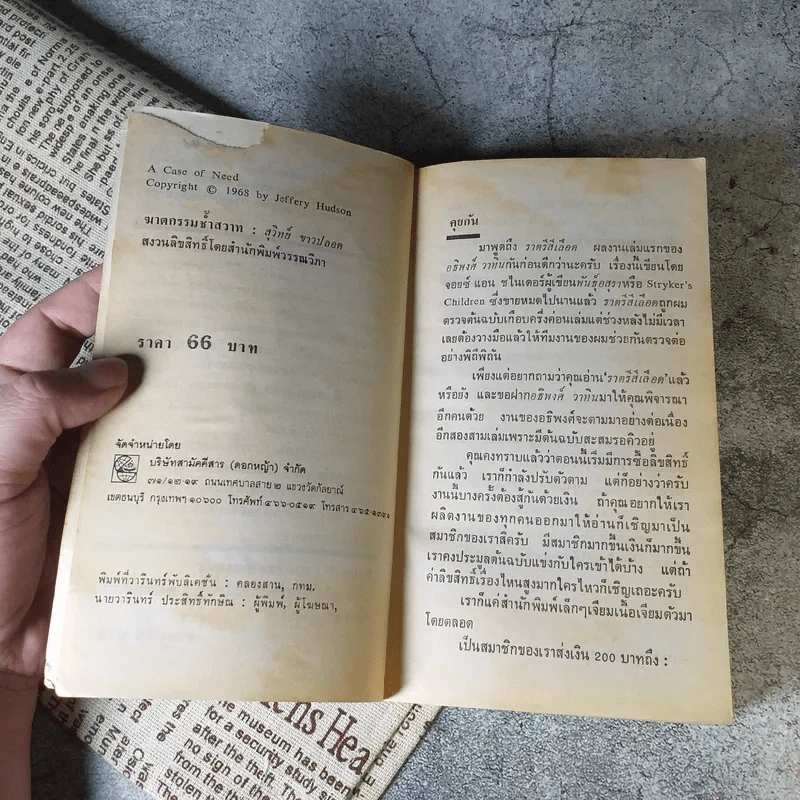 A Case of Need
Copyright © 1968 by Jeffery Hudson
ฆาตกรรมซ้ำสวาท : สุวิทย์ ขาวปลอด
สงวนลิขสิทธิ์โดยสำนักพิมพ์วรรณวิภา
ราคา 66 บาท
จัดจำหน่ายโดย
บริษัทสามัคคีสาร (ดอกหญ้า) จำกัด
๓๑/๑๒-๑๙ ถนนเทศบาลสาย ๒ แขวงวัดกัลยาณ์
เขตธนบุรี กรุงเทพฯ ๑๐๖๐๐ โทรศัพท์ ๔๖๖-๐๕๑๙ โทรสาร
พิมพ์ที่วารินทร์พับลิเคชั่น : คลองสาน, กทม.
นายวารินทร์ ประสิทธิ์ทักษิณ : ผู้พิมพ์, ผู้โฆษณา,
คุยกัน
มาพูดถึง ราตรีสีเลือด ผลงานเล่มแรกของ
อธิพงศ์ วาทินกันก่อนดีกว่านะครับ เรื่องนี้เขียนโดย
จอยซ์ แอน ชไนเดอร์ผู้เขียนพันธุ์อสุราหรือ Stryker's
Children ซึ่งขายหมดไปนานแล้ว ราตรีสีเลือดถูกผม
ตรวจต้นฉบับเกือบครึ่งค่อนเล่มแต่ช่วงหลังไม่มีเวลา
เลยต้องวางมือแล้วให้ทีมงานของผมช่วยกันตรวจต่อ
อย่างพิถีพิถัน
เพียงแต่อยากถามว่าคุณอ่าน'ราตรีสีเลือด'แล้ว
หรือยัง และขอฝากอธิพงศ์ วาทินมาให้คุณพิจารณา
อีกคนด้วย งานของอธิพงศ์จะตามมาอย่างต่อเนื่อง
อีกสองสามเล่มเพราะมีต้นฉบับสะสมรอคิวอยู่
คุณคงทราบแล้วว่าตอนนี้เริ่มมีการซื้อลิขสิทธิ์
กันแล้ว เราก็กำลังปรับตัวตาม แต่ก็อย่างว่าครับ
งานนี้บางครั้งต้องสู้กันด้วยเงิน ถ้าคุณอยากให้เรา
ผลิตงานของทุกคนออกมาให้อ่านก็เชิญมาเป็น
สมาชิกของเราสิครับ มีสมาชิกมากขึ้นเงินก็มากขึ้น
เราคงประมูลต้นฉบับแข่งกับใครเข้าได้บ้าง แต่ถ้า
ค่าลิขสิทธิ์เรื่องไหนสูงมากใครไหวก็เชิญเถอะครับ
เราก็แค่สำนักพิมพ์เล็กๆเจียมเนื้อเจียมตัวมา
โดยตลอด
เป็นสมาชิกของเราส่งเงิน 200 บาทถึง :
the museum has been
for a security study
after the theft. The
no sign of the
from the
stolen